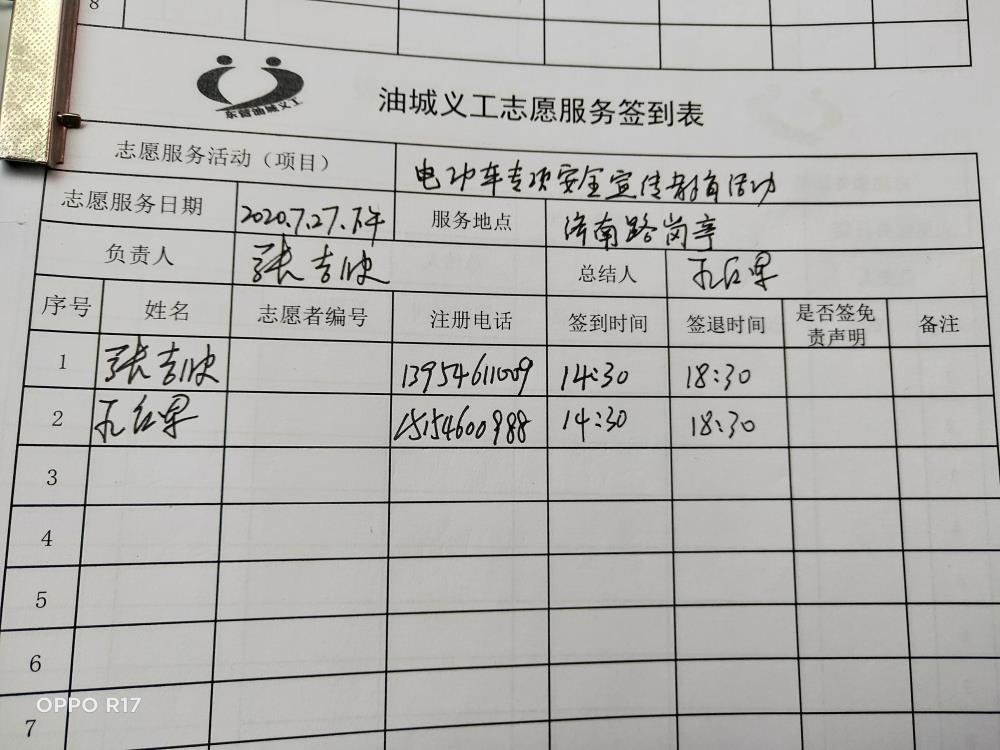 8
东营油城义工
油城义工志愿服务签到表
志愿服务活动（项目） 电动车专项安全宣传教育活动
志愿服务日期 2020.7.27.下午 服务地点 济南路岗亭
负责人 张吉 总结人 孔红果
序号 姓名 志愿者编号 注册电话 签到时间 签退时间 是否签免责声明 备注
1 张吉 13954611009 14:30 18:30
2 孔红果 15154600988 14:30 18:30
3
4
5
6
7
OPPO R17